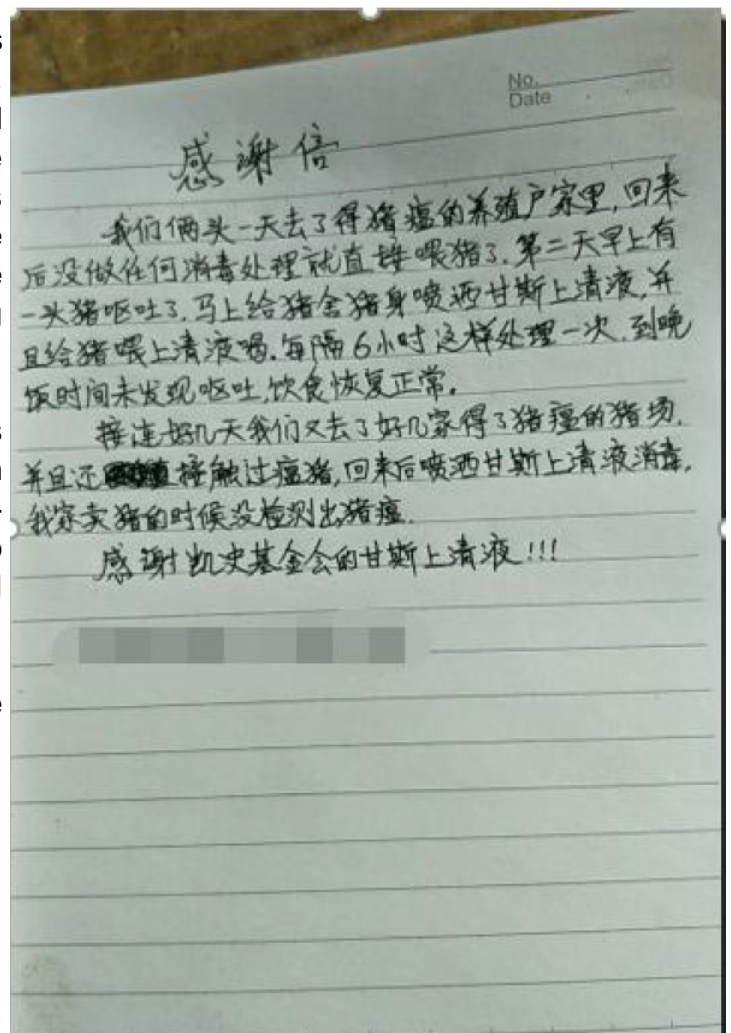 No.
Date
感谢信
我们俩头一天去了得猪瘟的养殖户家里,回来
后没做任何消毒处理就直接喂猪了.第二天早上有
一头猪呕吐了.马上给猪舍猪身喷洒甘斯上清液,并
且给猪喂上清液喝.每隔6小时这样处理一次.到晚
饭时间未发现呕吐,饮食恢复正常。
接连好几天我们又去了好几家得了猪瘟的猪场,
并且还接触过瘟猪,回来后喷洒甘斯上清液消毒,
我家卖猪的时候没检测出猪瘟.
感谢凯史基金会的甘斯上清液!!!